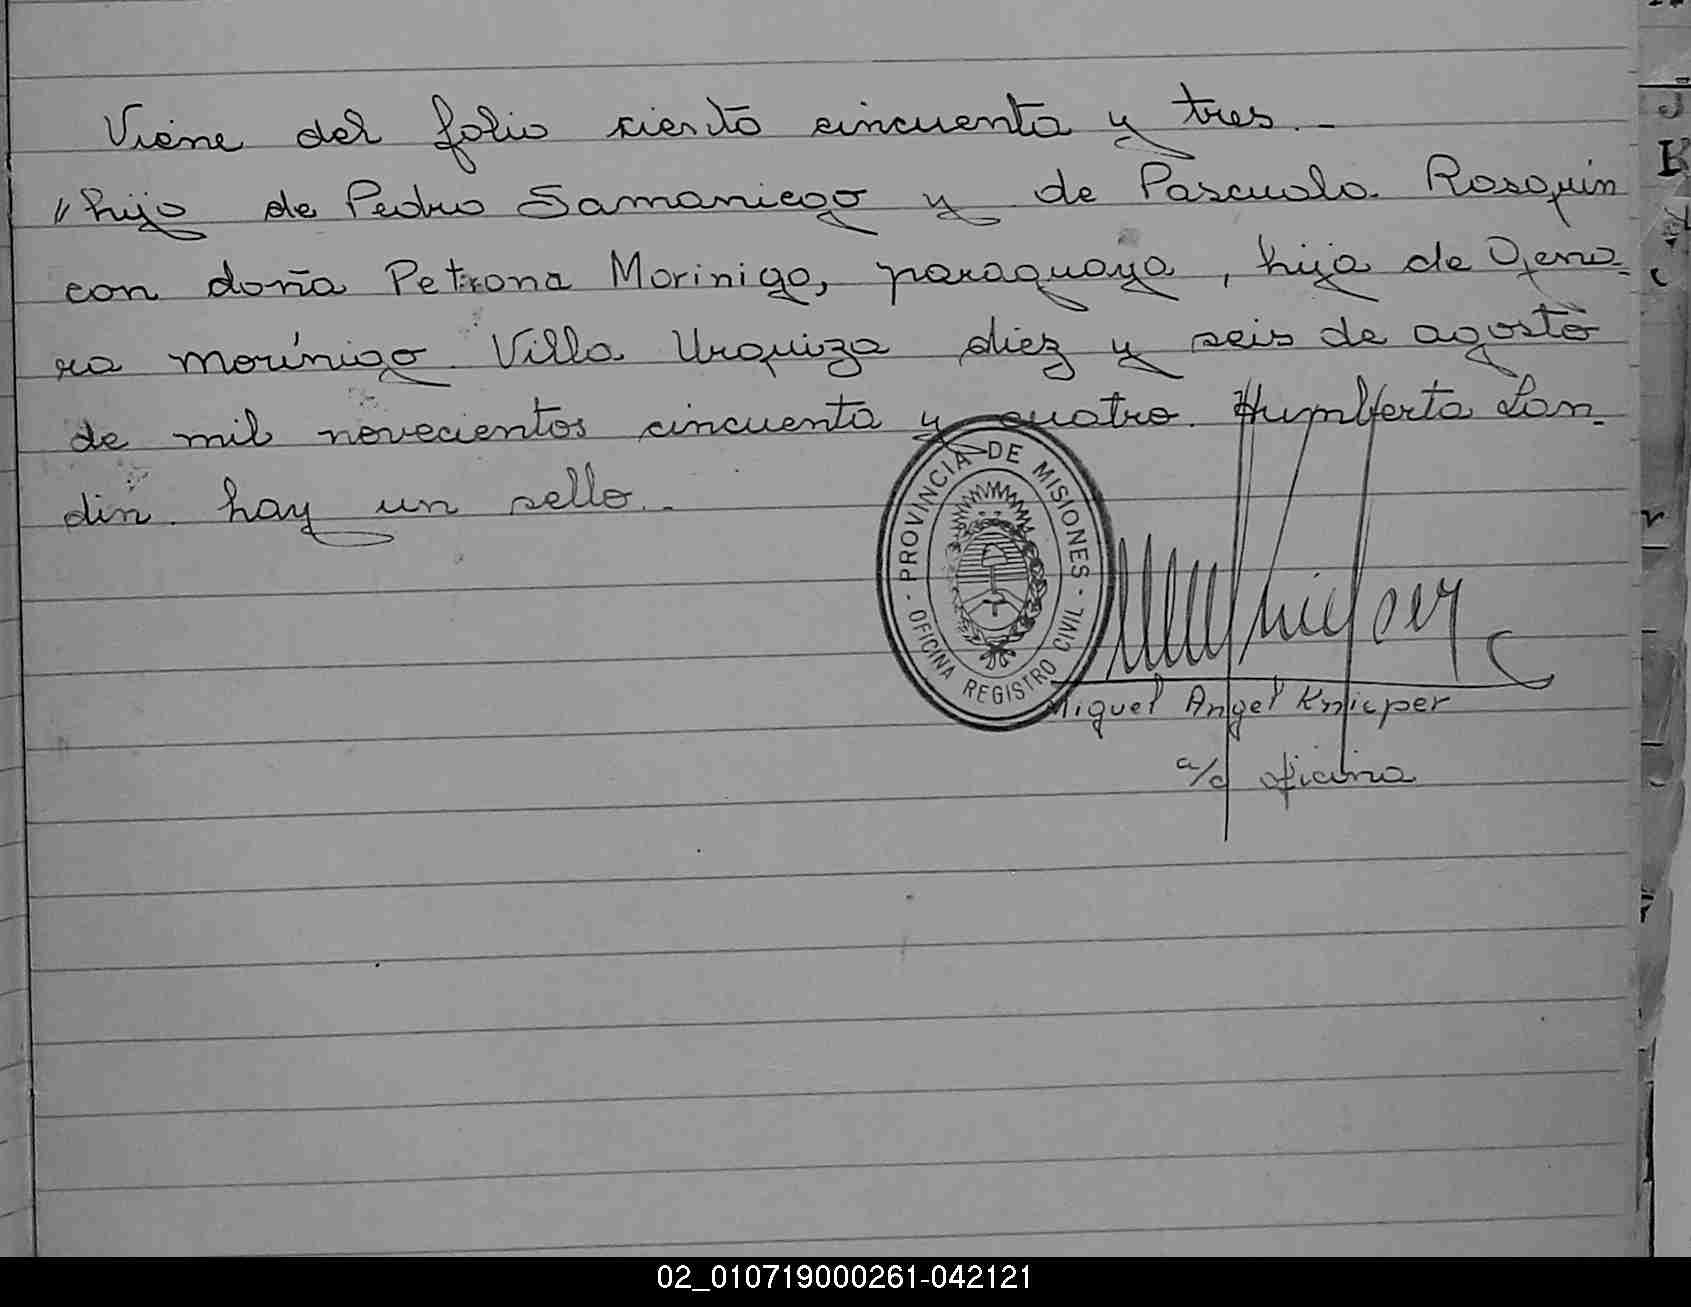 Viene del folio ciento cincuenta y tres.-
"hijo de Pedro Samaniego y de Pascuala Rosquin
con doña Petrona Morinigo, paraguaya, hija de Geno-
ra Morínigo. Villa Urquiza diez y seis de agosto
de mil novecientos cincuenta y cuatro. Humberta Lan-
din. hay un sello.-
· PROVINCIA DE MISIONES ·
OFICINA REGISTRO CIVIL
Miguel Angel Knieper
a/c oficina
02_010719000261-042121